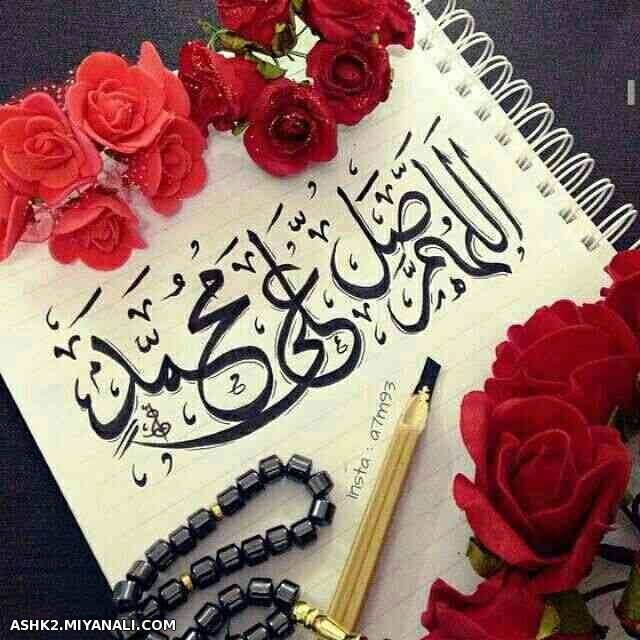 اللَّهُمَّ صَلِّ عَلَى مُحَمَّدٍ
insta : a7m93
ASHK2.MIYANALI.COM